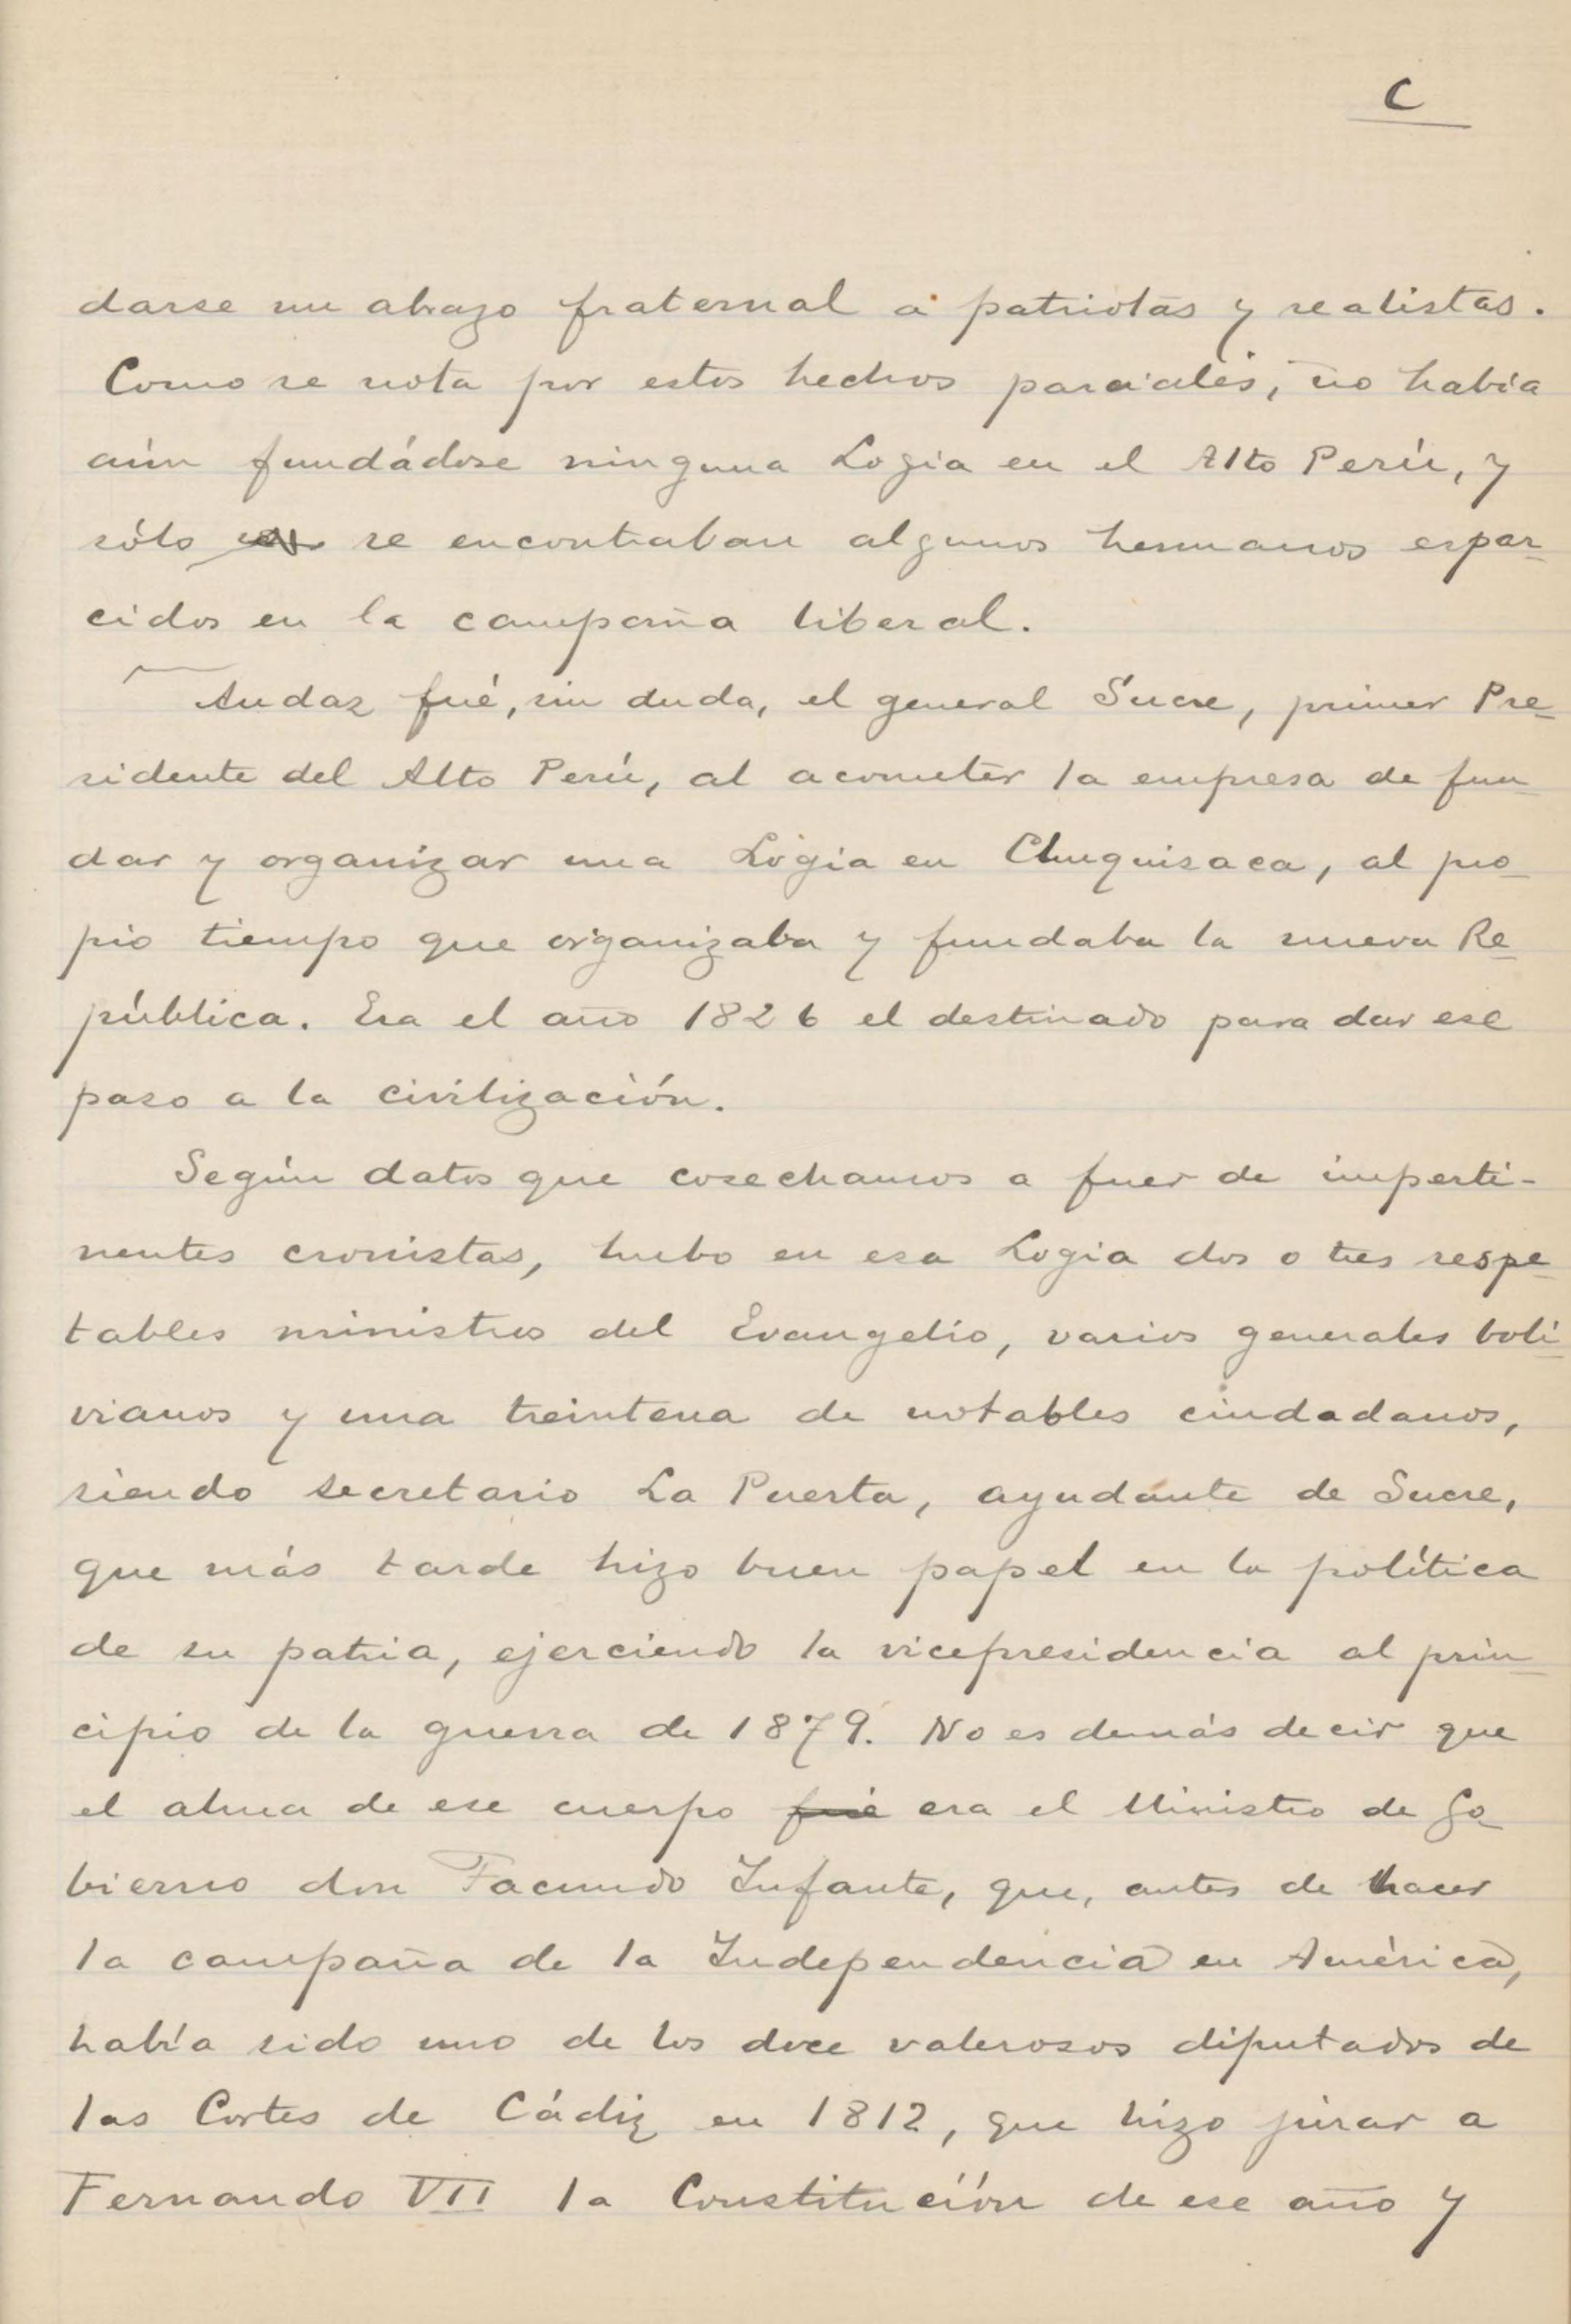 C
darse un abrazo fraternal a patriotas y realistas.
Como se nota por estos hechos parciales, no había
aún fundádose ninguna Logia en el Alto Perú, y
sólo se encontraban algunos hermanos espar-
cidos en la campaña liberal.
Audaz fué, sin duda, el general Sucre, primer Pre-
sidente del Alto Perú, al acometer la empresa de fun-
dar y organizar una Logia en Chuquisaca, al pro-
pio tiempo que organizaba y fundaba la nueva Re-
pública. Era el año 1826 el destinado para dar ese
paso a la civilización.
Según datos que cosechamos a fuer de imperti-
nentes cronistas, hubo en esa Logia dos o tres respe-
tables ministros del Evangelio, varios generales boli-
vianos y una treintena de notables ciudadanos,
siendo secretario La Puerta, ayudante de Sucre,
que más tarde hizo buen papel en la política
de su patria, ejerciendo la vicepresidencia al prin-
cipio de la guerra de 1879. No es demás decir que
el alma de ese cuerpo fué era el Ministro de Go-
bierno don Facundo Infante, que, antes de hacer
la campaña de la Independencia en América,
había sido uno de los doce valerosos diputados de
las Cortes de Cádiz en 1812, que hizo jurar a
Fernando VII la Constitución de ese año y